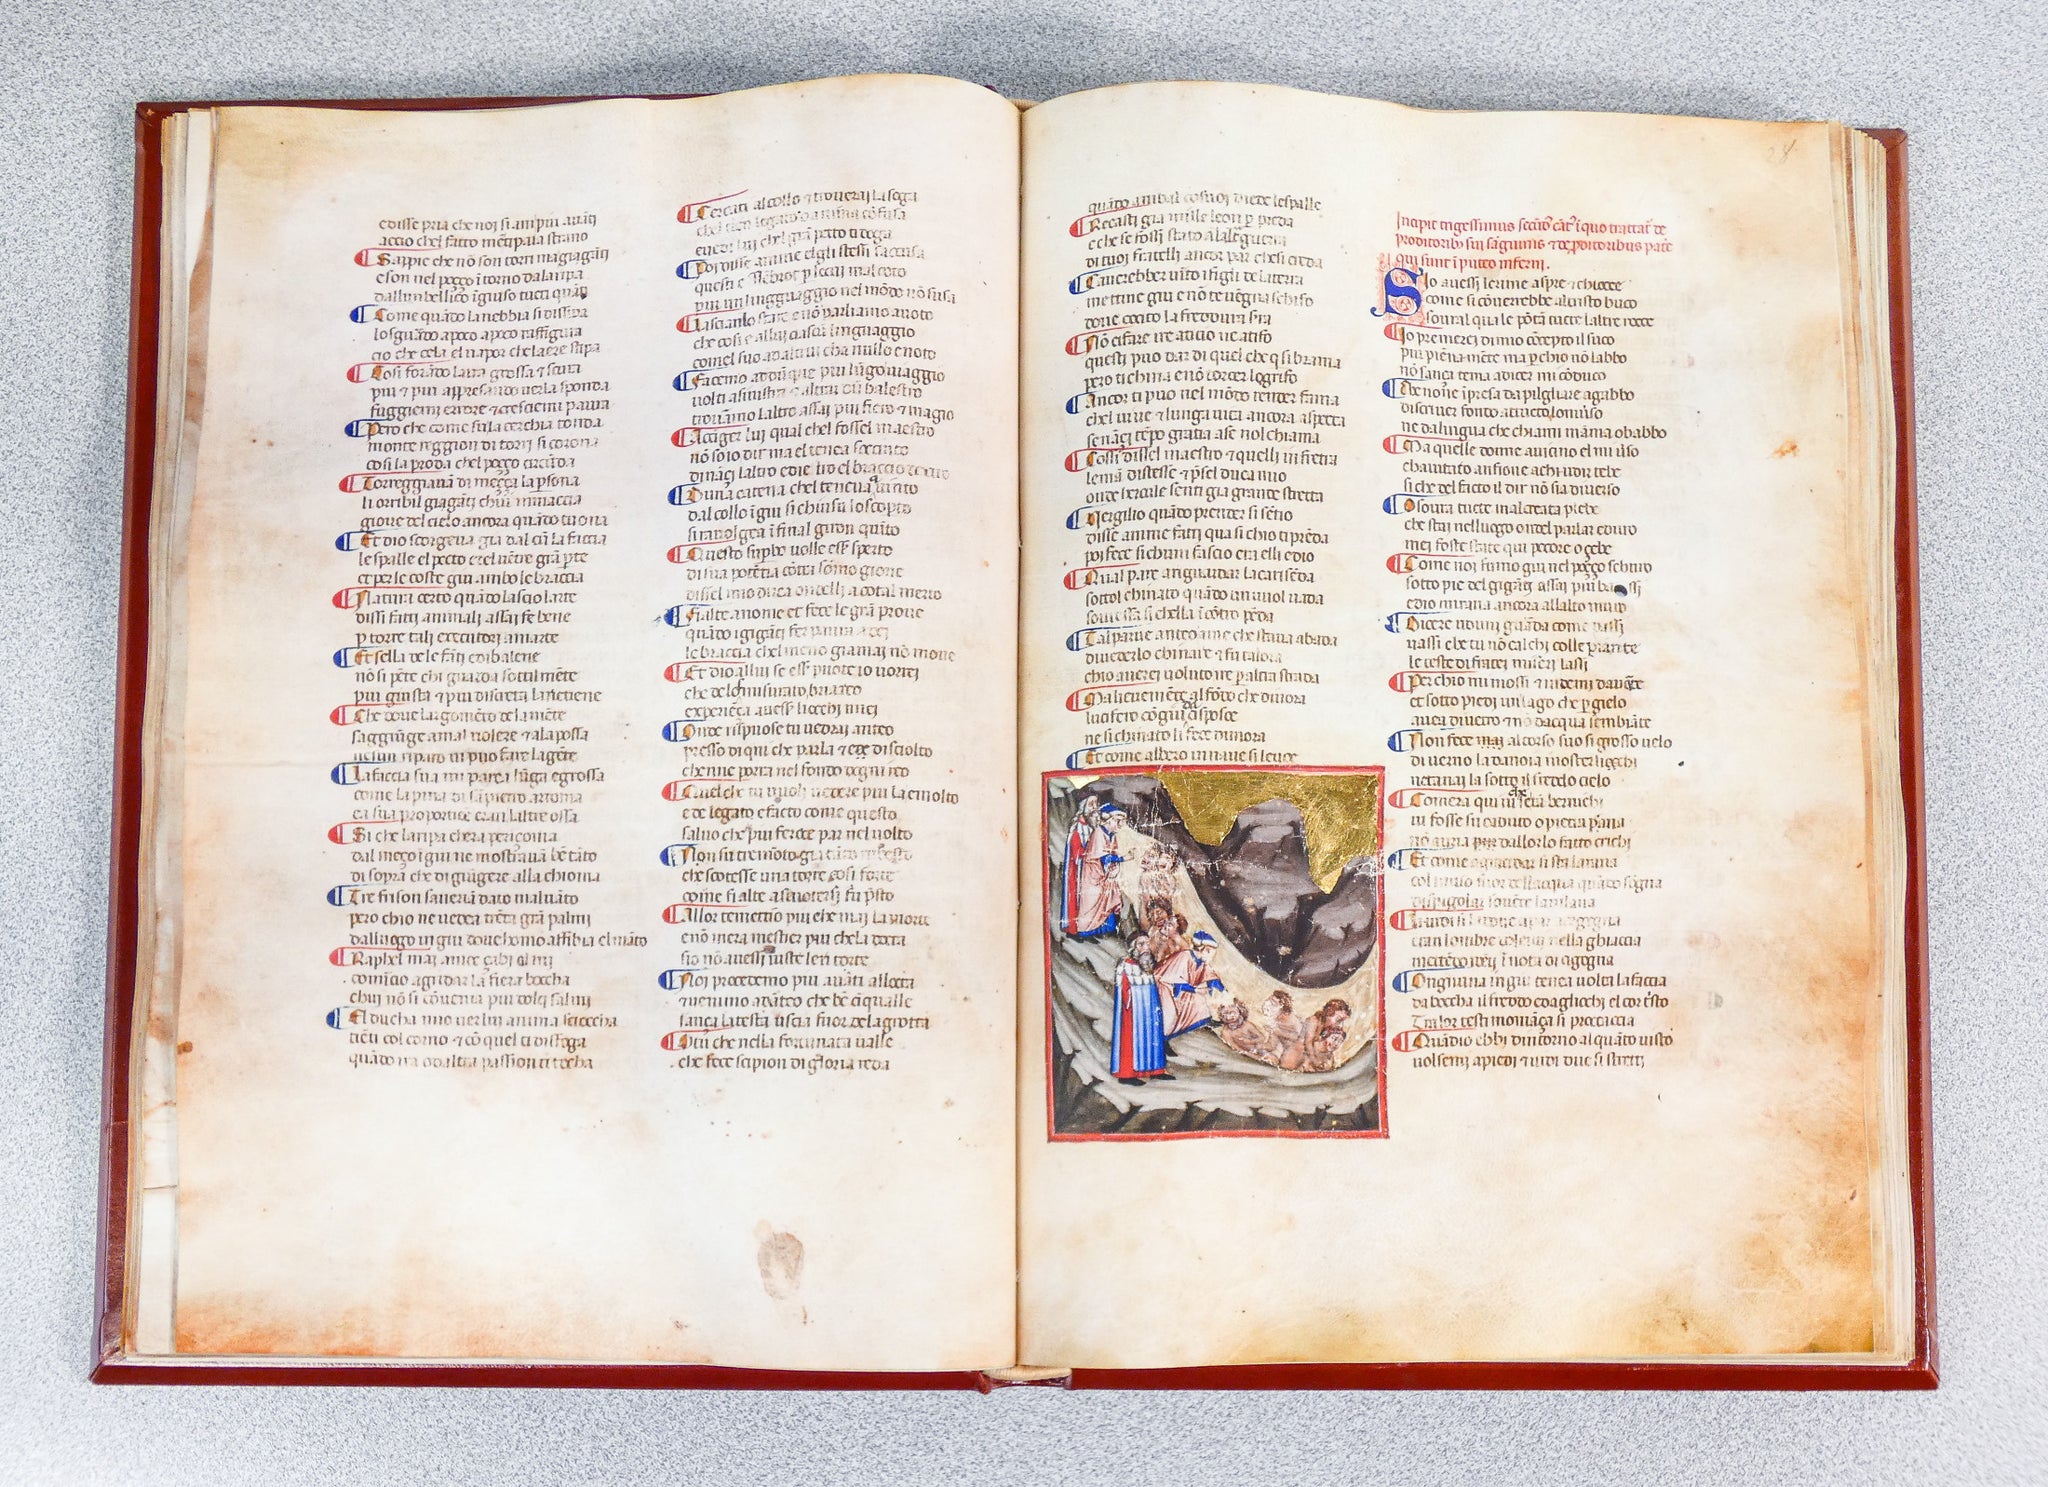 e disse pria che noi siam piu auāti
accio chel fatto mē ti paia strano
Sappie che nō son torri ma giagāti
e son nel poço ītorno da la ripa
dallunbellico īgiuso tucti quāti
Come quādo la nebbia si dissipa
lo sguardo apoco apoco raffigura
cio che cela el uapor che laere stipa
Cosi forādo laura grossa & scura
piu & piu appressando uer la sponda
fuggiemi errore & cresciemi paura
Pero che come su la cerchia tonda
monte reggion di torri si corona
cosi la proda chel poço circūda
Torreggiauā di meçça la psona
li orribil giagāti chui minaccia
gioue del cielo ancora quādo tuona
Et dio scorgeua gia dal cū la faccia
le spalle el pecto e del uētre grā pte
et per le coste giu ambo le braccia
Natura certo quādo lascio larte
di ssi fatti animali assai fe bene
p torre tali executori a marte
Et sella de le fāti e di balene
nō si pēte chi guarda sottilmēte
piu giusta & piu discreta la ne tiene
Che doue largomēto de la mēte
saggiūge a mal uolere & ala possa
nesun riparo ui puo fare la gēte
La faccia sua mi parea lūga e grossa
come la pina di sā pietro a roma
e a sua proportiōe eran laltre ossa
Si che la ripa chera periçoma
dal meço ī giu ne mostraua bē tāto
di sopra che di giūgere alla chioma
Tre frison saueriā dato mal uāto
pero chio ne uedea trēta grā palmi
dal luogo in giu doue homo affibia el māto
Raphel mai amice çabi almi
comīcio a gridar la fiera boccha
chui nō si cōuenia piu dolçi salmi
El ducha mio uer lui anima sciocha
tiēti col corno & cō quel ti disfoga
quādo ira od altra passion ti tocha
Cercati al collo & trouerai la soga
che tien legato o anima cōfusa
e uedi lui chel grā petto ti doga
Poi disse a me elgli stessi saccusa
questi e Nēbrot p lo cui mal coto
pur un lingguaggio nel mōdo nō susa
Lascianlo stare & nō parliamo a uoto
che cosi e a lui ciascū linguaggio
come l suo ad altrui cha nullo e noto
Facemo adūque piu lūgo uiaggio
uolti a sinistra & al trar dū balestro
trouāmo laltro assai piu fiero & magio
A cciger lui qual chel fosse l maestro
nō so io dir ma el tenea soccinto
dināçi laltro e dietro el braccio destro
Duna catena chel teneua auinto
dal collo ī giu si chiusu lo scoperto
si rauolgea īfinal giron quīto
Questo supbo uolle essē sperto
di sua potētia cōtra sōmo gioue
disse l mio duca ondelli a cotal merto
Fialte a nome et fece le grā proue
quādo i gigāti fer paura a dei
le braccia chel meno giamai nō moue
Et dio a llui se essē puote io uorrei
che de lo smisurato briareo
experiēça auessē li occhi miei
Onde rispuose tu uedrai anteo
presso di qui che parla & e disciolto
che ne porra nel fondo dogni reo
Quel che tu uuoli uedere piu la e molto
e de legato e facto come questo
saluo che piu feroce par nel uolto
Non fu tremoto gia tāto rubesto
che scotesse una torre cosi forte
come fialte a scuotersi fu psto
Allor temettio piu che mai la morte
e nō mera mestier piu che la docta
sio nō auessi uiste le ritorte
Noi procedemo piu auāti allocta
& uenimo ad āteo che bē cīqualle
sança la testa uscia fuor de la grotta
O tu che nella fortunata ualle
che fece scipion di gloria reda
quādo anibal co suoi diede le spalle
Recasti gia mille leon p preda
e che se fossi stato a lalta guerra
di tuoi fratelli ancor par chesi creda
Cauerebber uīto i figli de la terra
mettine giu e nō te uēgna schifo
doue cocito la freddura serra
Nō ci fare ire a ticio ne a tifo
questi puo dar di quel che q si brama
pero ti china e nō torcer lo grifo
Ancor ti puo nel mōdo render fama
chel uiue & lunga uita ancora aspecta
se nāçi tēpo gratia a se nol chiama
Cossi disse l maestro & quelli in fretta
le mā distese & psel duca mio
onde hercule senti gia grande stretta
Vergilio quādo prender si sētio
disse a me fatti qua si chio ti prēda
poi fece si chun fascio era elli e dio
Qual pare a riguardar la carisēda
sottol chinato quādo un uuol uada
souressa si chella ī cōtro pēda
Tal parue anteo a me che staua a bada
di uederlo chinare & fu talora
chio auerei uoluto ire p altra strada
Ma lieuemēte al fōdo che diuora
lucifero cō giuda ci spose
ne si chinato li fece dimora
Et come albero in naue si leuoe
28
Incipit trigessimus secūdus cāt' ī quo tractat' de
proditorib; sui sāguinis & de proditoribus patrie
qui sunt ī puteo inferni.
Sio auessi le rime aspre & chiocce
come si cōuerrebbe al tristo buco
soural qua le pōtā tucte laltre rocce
Io premerei di mio cōcepto il suco
piu pienamēte ma p chio nō labbo
nō sança tema a dicer mi cōduco
Che nō ne īpresa da pilgliare a gabbo
discriuer fondo a tucto lo uniuso
ne da lingua che chiami māma o babbo
Ma quelle donne aiutino el mi uso
chaiutaro anfione a chiuder tebe
si che del facto il dir nō sia diuerso
O soura tucte mal creata plebe
che stai nel luogo onde l parlar e duro
mei foste state qui pecore o çebe
Come noi fumo giu nel poçço schuro
sotto pie del gigāti assai piu bassi
e dio miraua ancora allalto muro
Dicere udimi guarda come passi
ua ssi che tu nō calchi colle piante
le teste di fratei miseri lassi
Per chio mi mossi & uidemi dauāte
et sotto piedi un lago che p gielo
auea di uetro & nō dacqua sembiāte
Non fece mai al corso suo si grosso uelo
di uerno la danoia in osterlicchi
ne tanai la sotto il freddo cielo
Comera qui ui che se tā bernichi
ui fosse su caduto o pietra pana
nō auria pur dallorlo fatto crichi
Et come a gracidar si sta la rana
col muso fuor dellacqua quādo sogna
di spigolar souēte la uilana
Liuidi si la doue apar uergogna
eran lombre dolenti nella ghiaccia
mettēdo i dēti ī nota di cigogna
Ongnuna in giu tenea uolta la faccia
da boccha il freddo e da glicchi el cor tristo
Tra lor testimoniāça si procaccia
Quādio ebbi dītorno alquāto uisto
uolsemi a piedi & uidi due si stretti